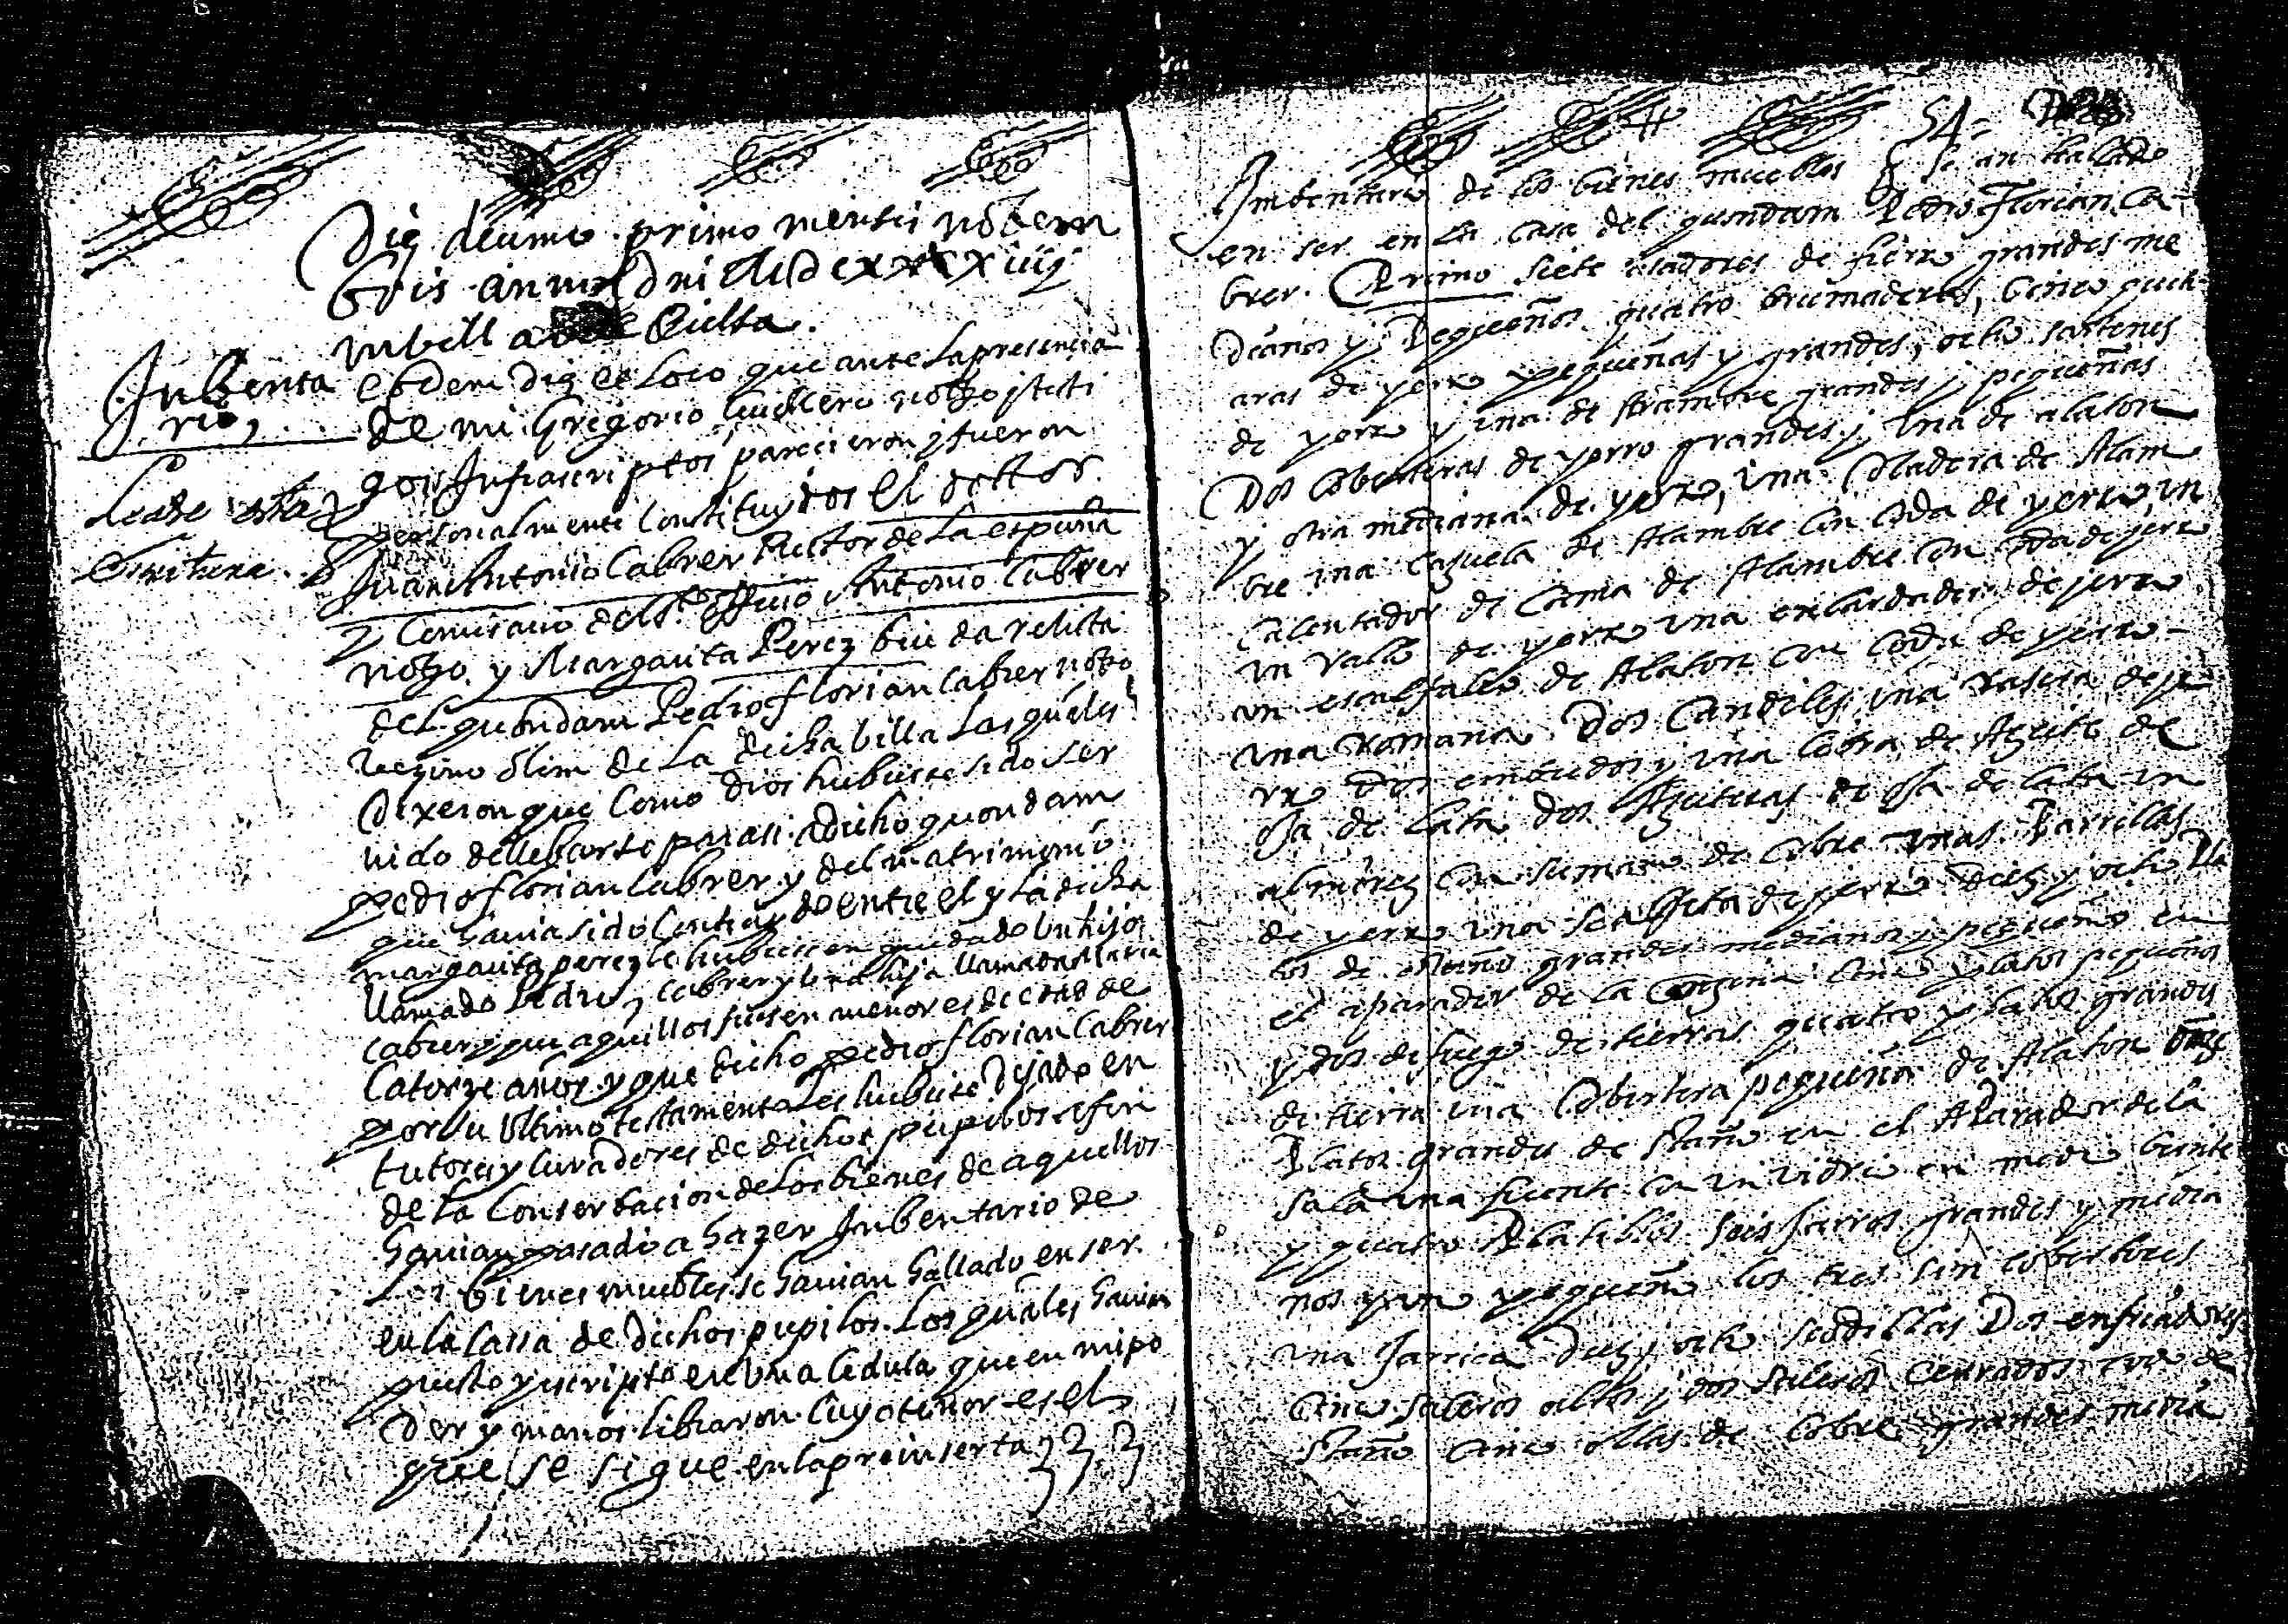 Die decimo primo mensis nobem
bris anno Dni MDCxxxxiiij
in villa de Cuilla.
Inbenta
rio,
Eodem die et loco que ante la presencia
de mi Gregorio Guillero notto y testi
gos Infrascriptos parecieron y fueron
Lease esta
Escritura.
personalmente constituydos el dottor
Juan Antonio Cabrer Rector de la espuña
y Comisario del S.to officio Antonio Cabrer
notto. y Margarita Perez biuda relicta
del quondam Pedro florian Cabrer notto
vezino olim de la dicha billa Los quales
Dixeron que como dios hubiese sido ser
uido de llebarse para si a dicho quondam
pedro florian Cabrer y del matrimonio
que hauia sido contraydo entre el y la dicha
margarita perez le hubiesen quedado un hijo
llamado Pedro cabrer y una hija llamada Maria
cabrer y que aquellos fuesen menores de edad de
Catorze años y que dicho pedro florian Cabrer
por su ultimo testamento les hubiese dejado en
tutores y curadores de dichos pupilos a fin
de la Conserbacion de los bienes de aquellos
hauian pasado a hazer Inbentario de
los bienes muebles se hauian hallado en ser
en la cassa de dichos pupilos. Los quales hauian
puesto y escripto en una cedula que en mi po
der y manos libraron cuyo tenor es el
que se sigue en la preinserta
54=
Imbentario de los bienes muebles q se an hallado
en ser en la casa del quondam Pedro Florian Ca-
brer. Primo siete asadores de fierro grandes me
dianos y Pequeños quatro brumaderas, cinco cuch
aras de yerro pequeñas y grandes, ocho sartenes
de yerro y una de arambre grandes y pequeñas
Dos Coberteras de yerro grandes y una de alaton
y otra mediana de yerro, una coladera de Alam
bre una cazuela de Alambre con coda de yerro un
Calentador de Cama de Alambre con coda de yerro
un rallo de yerro una enlardadera de yerro
un escalfador de Alaton con coda de yerro-
una romana. Dos Candiles una rasera de ye
rro Dos embudos y una de Azeite de
oja de lata dos Azeiteras de oja de lata un
almirez con su mano de cobre unas Parrillas
de yerro una de yerro Diez y ocho Pla
tos de estaño grandes medianos y pequeños en
el aparador de la Cozina cinco platos pequeños
y dos de fuego de tierras quatro platos grandes
de tierra una Cobertera pequeña de Alaton onze
Platos grandes de estaño en el Aparador de la
sala una fuente con un vidrio en medio beinte
y quatro Platillos seis Jarros grandes y media
nos y un pequeño los tres sin cobertores
una Jarrica Diez y ocho scudillas Dos enfriadores
Cinco saleros altos y dos saleros cerrados todo de
estaño cinco ollas de Cobre grandes media